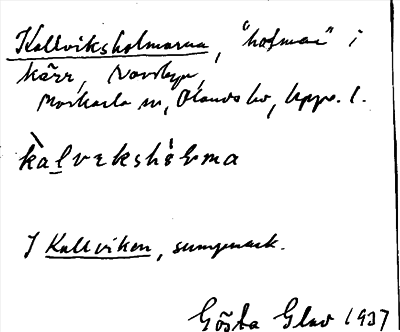 Kallviksholmarna, "holmar" i
kärr, Norrbyn,
Morkarla sn, Olands hd, Upps. l.
kalvɩksholma
I Kallviken, sumpmark.
Gösta Glav 1937